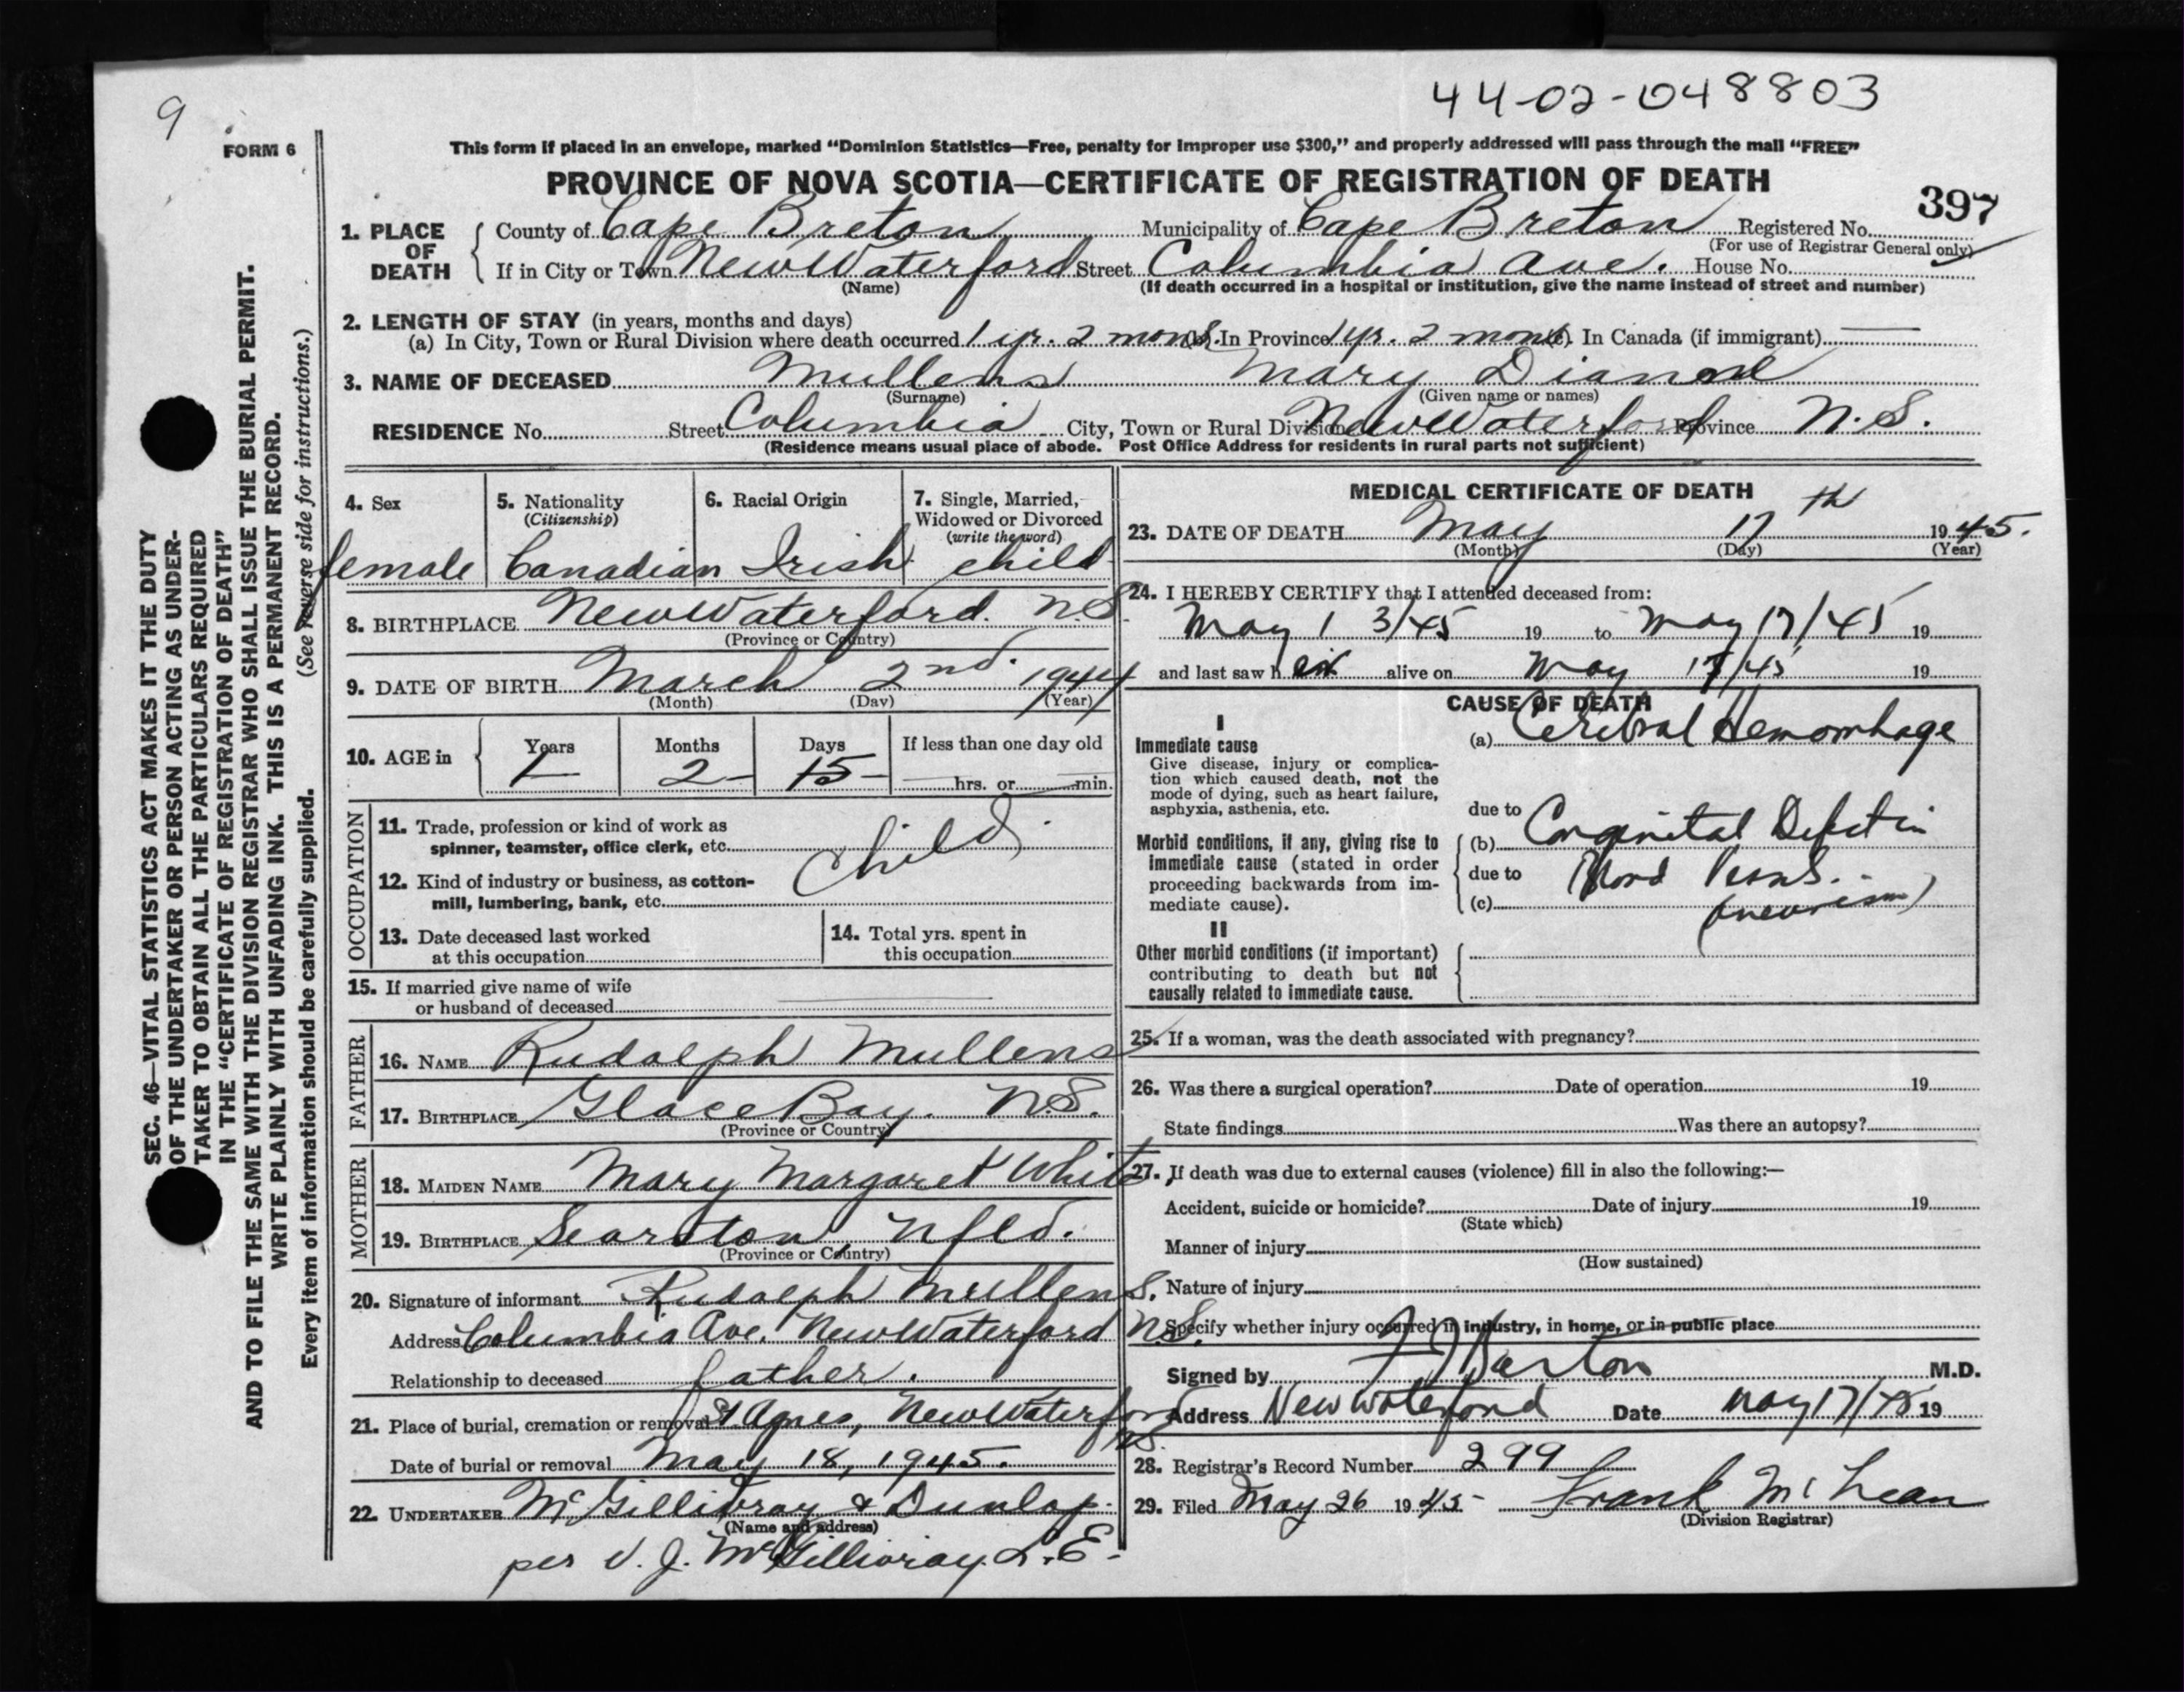 44-02-048803
9
FORM 6
This form if placed in an envelope, marked “Dominion Statistics—Free, penalty for improper use $300,” and properly addressed will pass through the mail “FREE”
PROVINCE OF NOVA SCOTIA—CERTIFICATE OF REGISTRATION OF DEATH
397
1. PLACE OF DEATH
County of Cape Breton Municipality of Cape Breton Registered No.
(For use of Registrar General only)
If in City or Town New Waterford Street Columbia Ave. House No.
(Name) (If death occurred in a hospital or institution, give the name instead of street and number)
2. LENGTH OF STAY (in years, months and days)
(a) In City, Town or Rural Division where death occurred 1 yr. 2 mons. In Province 1 yr. 2 mons. In Canada (if immigrant)
3. NAME OF DECEASED Mullens Mary Dianne
(Surname) (Given name or names)
RESIDENCE No. Street Columbia City, Town or Rural Division New Waterford Province N.S.
(Residence means usual place of abode. Post Office Address for residents in rural parts not sufficient)
4. Sex
female
5. Nationality
(Citizenship)
Canadian
6. Racial Origin
Irish
7. Single, Married,
Widowed or Divorced
(write the word)
child
8. BIRTHPLACE New Waterford. N.S.
(Province or Country)
9. DATE OF BIRTH March 2nd. 1944
(Month) (Day) (Year)
10. AGE in
Years Months Days If less than one day old
1 2 15 hrs. or min.
OCCUPATION
11. Trade, profession or kind of work as
spinner, teamster, office clerk, etc.
Child
12. Kind of industry or business, as cotton-
mill, lumbering, bank, etc.
13. Date deceased last worked
at this occupation
14. Total yrs. spent in
this occupation
15. If married give name of wife
or husband of deceased
FATHER
16. NAME Rudolph Mullens
17. BIRTHPLACE Glace Bay. N.S.
(Province or Country)
MOTHER
18. MAIDEN NAME Mary Margaret White
19. BIRTHPLACE Searston, Nfld.
(Province or Country)
20. Signature of informant Rudolph Mullens.
Address Columbia Ave. New Waterford N.S.
Relationship to deceased father.
21. Place of burial, cremation or removal St Agnes, New Waterford
N.S.
Date of burial or removal May 18, 1945.
22. UNDERTAKER McGillivray & Dunlap.
(Name and address)
per V. J. McGillivray. L.E.
MEDICAL CERTIFICATE OF DEATH
23. DATE OF DEATH May 17th 1945.
(Month) (Day) (Year)
24. I HEREBY CERTIFY that I attended deceased from:
May 13/45 19 to May 17/45 19
and last saw her alive on May 17/45 19
CAUSE OF DEATH
I
Immediate cause
Give disease, injury or complica-
tion which caused death, not the
mode of dying, such as heart failure,
asphyxia, asthenia, etc.
(a) Cerebral Hemorrhage
due to
Morbid conditions, if any, giving rise to
immediate cause (stated in order
proceeding backwards from im-
mediate cause).
(b) Congenital Defect in
due to Blood
(c) (aneurism)
II
Other morbid conditions (if important)
contributing to death but not
causally related to immediate cause.
25. If a woman, was the death associated with pregnancy?
26. Was there a surgical operation? Date of operation 19
State findings Was there an autopsy?
27. If death was due to external causes (violence) fill in also the following:—
Accident, suicide or homicide? Date of injury 19
(State which)
Manner of injury
(How sustained)
Nature of injury
Specify whether injury occurred in industry, in home, or in public place
Signed by F J Barton M.D.
Address New Waterford Date May 17/45 19
28. Registrar's Record Number 299
29. Filed May 26 1945 Frank McLean
(Division Registrar)
SEC. 46—VITAL STATISTICS ACT MAKES IT THE DUTY
OF THE UNDERTAKER OR PERSON ACTING AS UNDER-
TAKER TO OBTAIN ALL THE PARTICULARS REQUIRED
IN THE “CERTIFICATE OF REGISTRATION OF DEATH”
AND TO FILE THE SAME WITH THE DIVISION REGISTRAR WHO SHALL ISSUE THE BURIAL PERMIT.
WRITE PLAINLY WITH UNFADING INK. THIS IS A PERMANENT RECORD.
Every item of information should be carefully supplied. (See reverse side for instructions.)